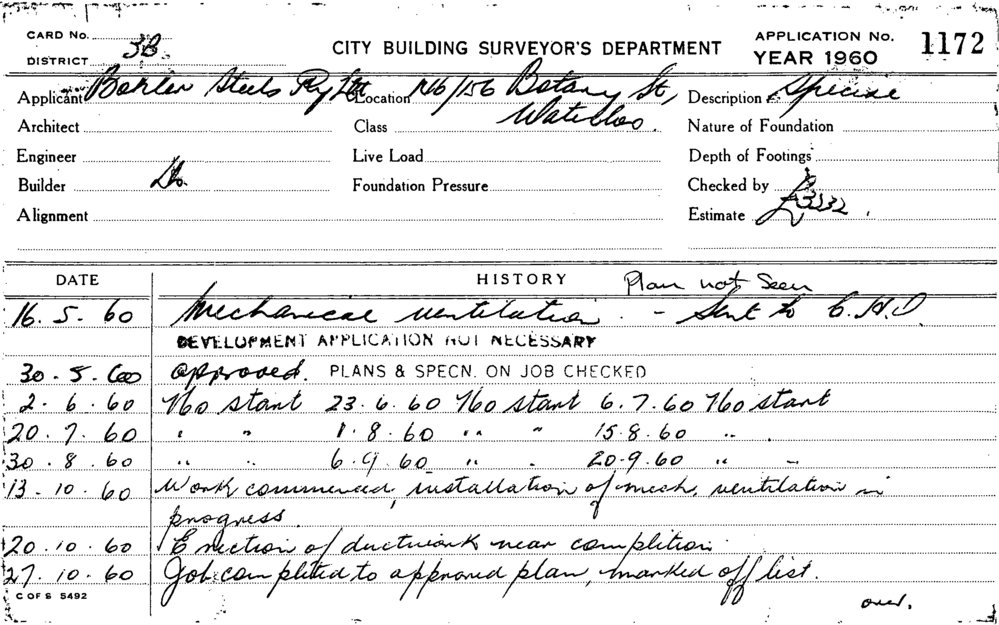 CARD No.
DISTRICT 3B
CITY BUILDING SURVEYOR'S DEPARTMENT
APPLICATION No. 1172
YEAR 1960
Applicant Bohler Steels Pty Ltd Location 146/156 Botany St, Description Special
Waterloo.
Architect Class Nature of Foundation
Engineer Live Load Depth of Footings
Builder Do. Foundation Pressure Checked by
Alignment Estimate £3232.
DATE HISTORY Plan not Seen
16.5.60 Mechanical ventilation. - Sent to C.H.D.
DEVELOPMENT APPLICATION NOT NECESSARY
30.5.60 Approved. PLANS & SPECN. ON JOB CHECKED
2.6.60 No start 23.6.60 No start 6.7.60 No start
20.7.60 " " 1.8.60 " " 15.8.60 " .
30.8.60 " " 6.9.60 " " 20.9.60 " "
13.10.60 Work commenced, installation of mech. ventilation in
progress.
20.10.60 Erection of ductwork near completion.
27.10.60 Job completed to approved plan, marked off list.
C OF S 5492
over.